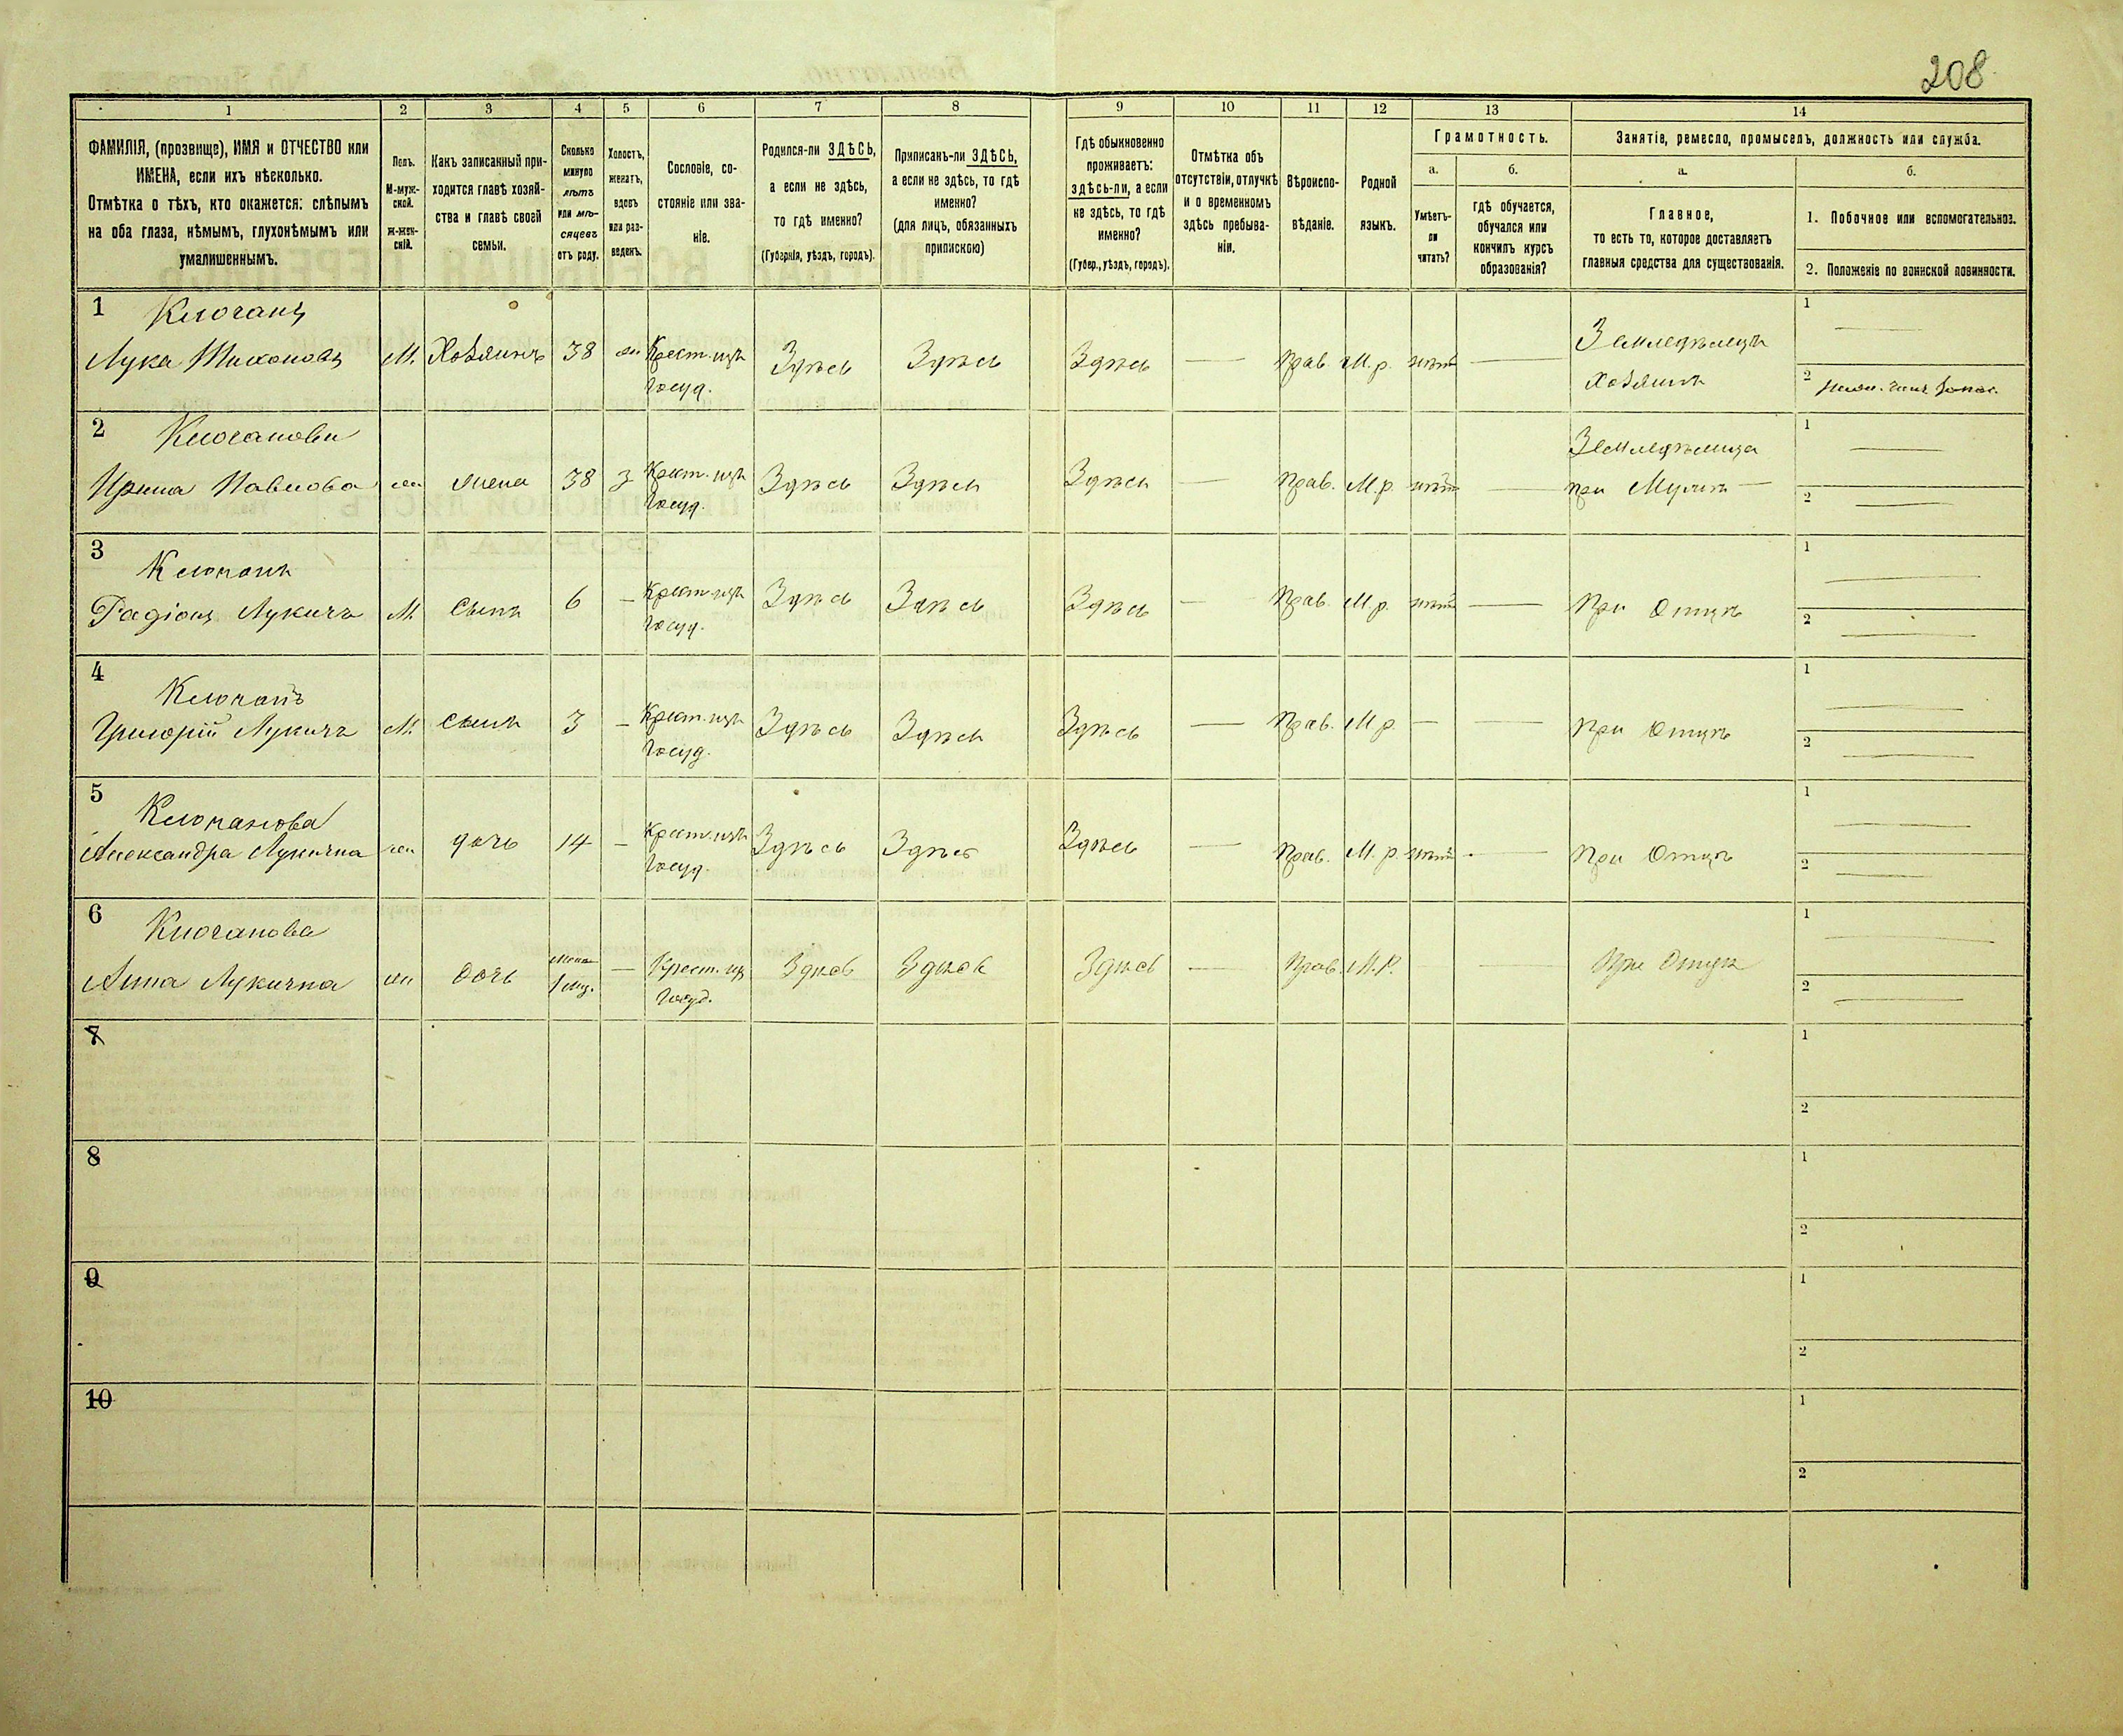 208
1 2 3 4 5 6 7 8 9 10 11 12 13 14
ФАМИЛІЯ, (прозвище), ИМЯ и ОТЧЕСТВО или
ИМЕНА, если ихъ нѣсколько.
Отмѣтка о тѣхъ, кто окажется: слѣпымъ
на оба глаза, нѣмымъ, глухонѣмымъ или
умалишеннымъ.
Полъ.
М-муж-
ской.
ж-жен-
скій.
Какъ записанный при-
ходится главѣ хозяй-
ства и главѣ своей
семьи.
Сколько
минуло
лѣтъ
или мѣ-
сяцевъ
отъ роду.
Холостъ,
женатъ,
вдовъ
или раз-
веденъ.
Сословіе, со-
стояніе или зва-
ніе.
Родился-ли ЗДѢСЬ,
а если не здѣсь,
то гдѣ именно?
(Губернія, уѣздъ, городъ).
Приписанъ-ли ЗДѢСЬ,
а если не здѣсь, то гдѣ
именно?
(для лицъ, обязанныхъ
припискою)
Гдѣ обыкновенно
проживаетъ:
здѣсь-ли, а если
не здѣсь, то гдѣ
именно?
(Губер., уѣздъ, городъ).
Отмѣтка объ
отсутствіи, отлучкѣ
и о временномъ
здѣсь пребыва-
ніи.
Вѣроиспо-
вѣданіе.
Родной
языкъ.
Грамотность.
а.
Умѣетъ-
ли
читать?
б.
гдѣ обучается,
обучался или
кончилъ курсъ
образованія?
Занятіе, ремесло, промыселъ, должность или служба.
а.
Главное,
то есть то, которое доставляетъ
главныя средства для существованія.
б.
1. Побочное или вспомогательное.
2. Положеніе по воинской повинности.
1 Клочанъ Земледѣлецъ 1 —
Лука Тихоновъ М. Хозяинъ 38 Крест. изъ Здѣсь Здѣсь Здѣсь — Прав. М.р. нѣтъ —
Госуд. Хозяинъ 2
2 Клочанови Земледѣлица 1 —
Ирина Павлова жена 38 З Крест. изъ Здѣсь Здѣсь Здѣсь — Прав. М.р. нѣтъ — при Мужѣ —
Госуд. 2 —
3 Клочанъ 1 —
Радіонъ Лукичъ М. Сынъ 6 — Крест. изъ Здѣсь Здѣсь Здѣсь — Прав. М.р. нѣтъ — При Отцѣ
Госуд. 2 —
4 Клочанъ 1 —
Григорій Лукичъ М. Сынъ 3 — Крест. изъ Здѣсь Здѣсь Здѣсь — Прав. М.р. — — При Отцѣ
Госуд. 2 —
5 Клочанова 1 —
Александра Лукична дочь 14 — Крест. изъ Здѣсь Здѣсь Здѣсь — Прав. М.р. нѣтъ — При Отцѣ
Госуд. 2 —
6 Клочанова 1 —
Анна Лукична дочь 1 мц. — Крест. из Здѣсь Здѣсь Здѣсь — Прав. М.Р. — При Отцѣ
Госуд. 2 —
7 1
2
8 1
2
9 1
2
10 1
2